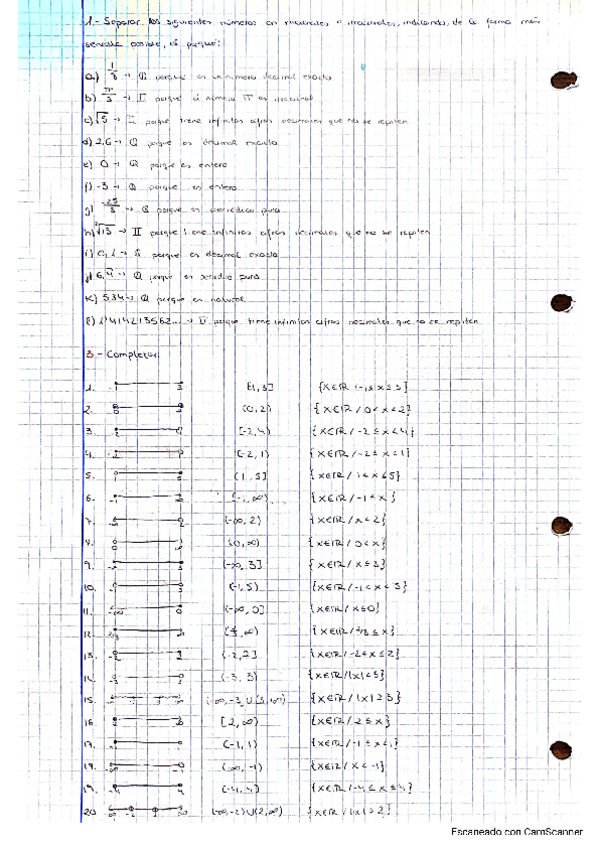 1.- Separar los siguientes números en racionales o irracionales, indicando, de la forma más
sencilla posible, el porqué:
a) 1/8 → Q porque es un número decimal exacto
b) π/3 → I porque el número π es irracional
c) √5 → I porque tiene infinitas cifras decimales que no se repiten
d) 2,6 → Q porque es decimal exacto
e) 0 → Q porque es entero
f) -3 → Q porque es entero
g) -25/3 → Q porque es periódico puro
h) √13 → I porque tiene infinitas cifras decimales que no se repiten
i) 0,1 → Q porque es decimal exacto
j) 6, → Q porque es puro
k) 534 → Q porque es natural
l) 1'414213562... → I porque tiene infinitas cifras decimales que no se repiten
3.- Completar
1. -1 3 [-1,3] {x∈R / -1≤x≤3}
2. 0 2 (0,2) {x∈R / 0<x<2}
3. -2 4 [-2,4) {x∈R / -2≤x<4}
4. -2 1 {x∈R / -2≤x≤1}
5. 1 5 (1,5] {x∈R / 1<x≤5}
6. -1 ∞ {x∈R / -1<x}
7. -∞ 2 (-∞,2) {x∈R / x<2}
8. 0 ∞ (0,∞) {x∈R / 0<x}
9. -∞ 3 (-∞,3] {x∈R / x≤3}
10. (-1,5) {x∈R / -1<x<5}
11. -∞ 0 (-∞,0] {x∈R / x≤0}
12. 2/3 ∞ {x∈R / 2/3≤x}
13. -2 2 (-2,2] {x∈R / -2<x≤2}
14. -3 3 (-3,3) {x∈R / |x|<3}
15. {x∈R / |x|≥3}
16. 2 ∞ [2,∞) {x∈R / 2≤x}
17. -1 1 (-1,1) {x∈R / -1≤x<1}
18. -∞ -1 (∞,-1) {x∈R / x<-1}
19. -4 4 {x∈R / -4≤x≤4}
20. -∞ -2 2 ∞ (-∞,-2)∪(2,∞) {x∈R / |x|>2}
Escaneado con CamScanner